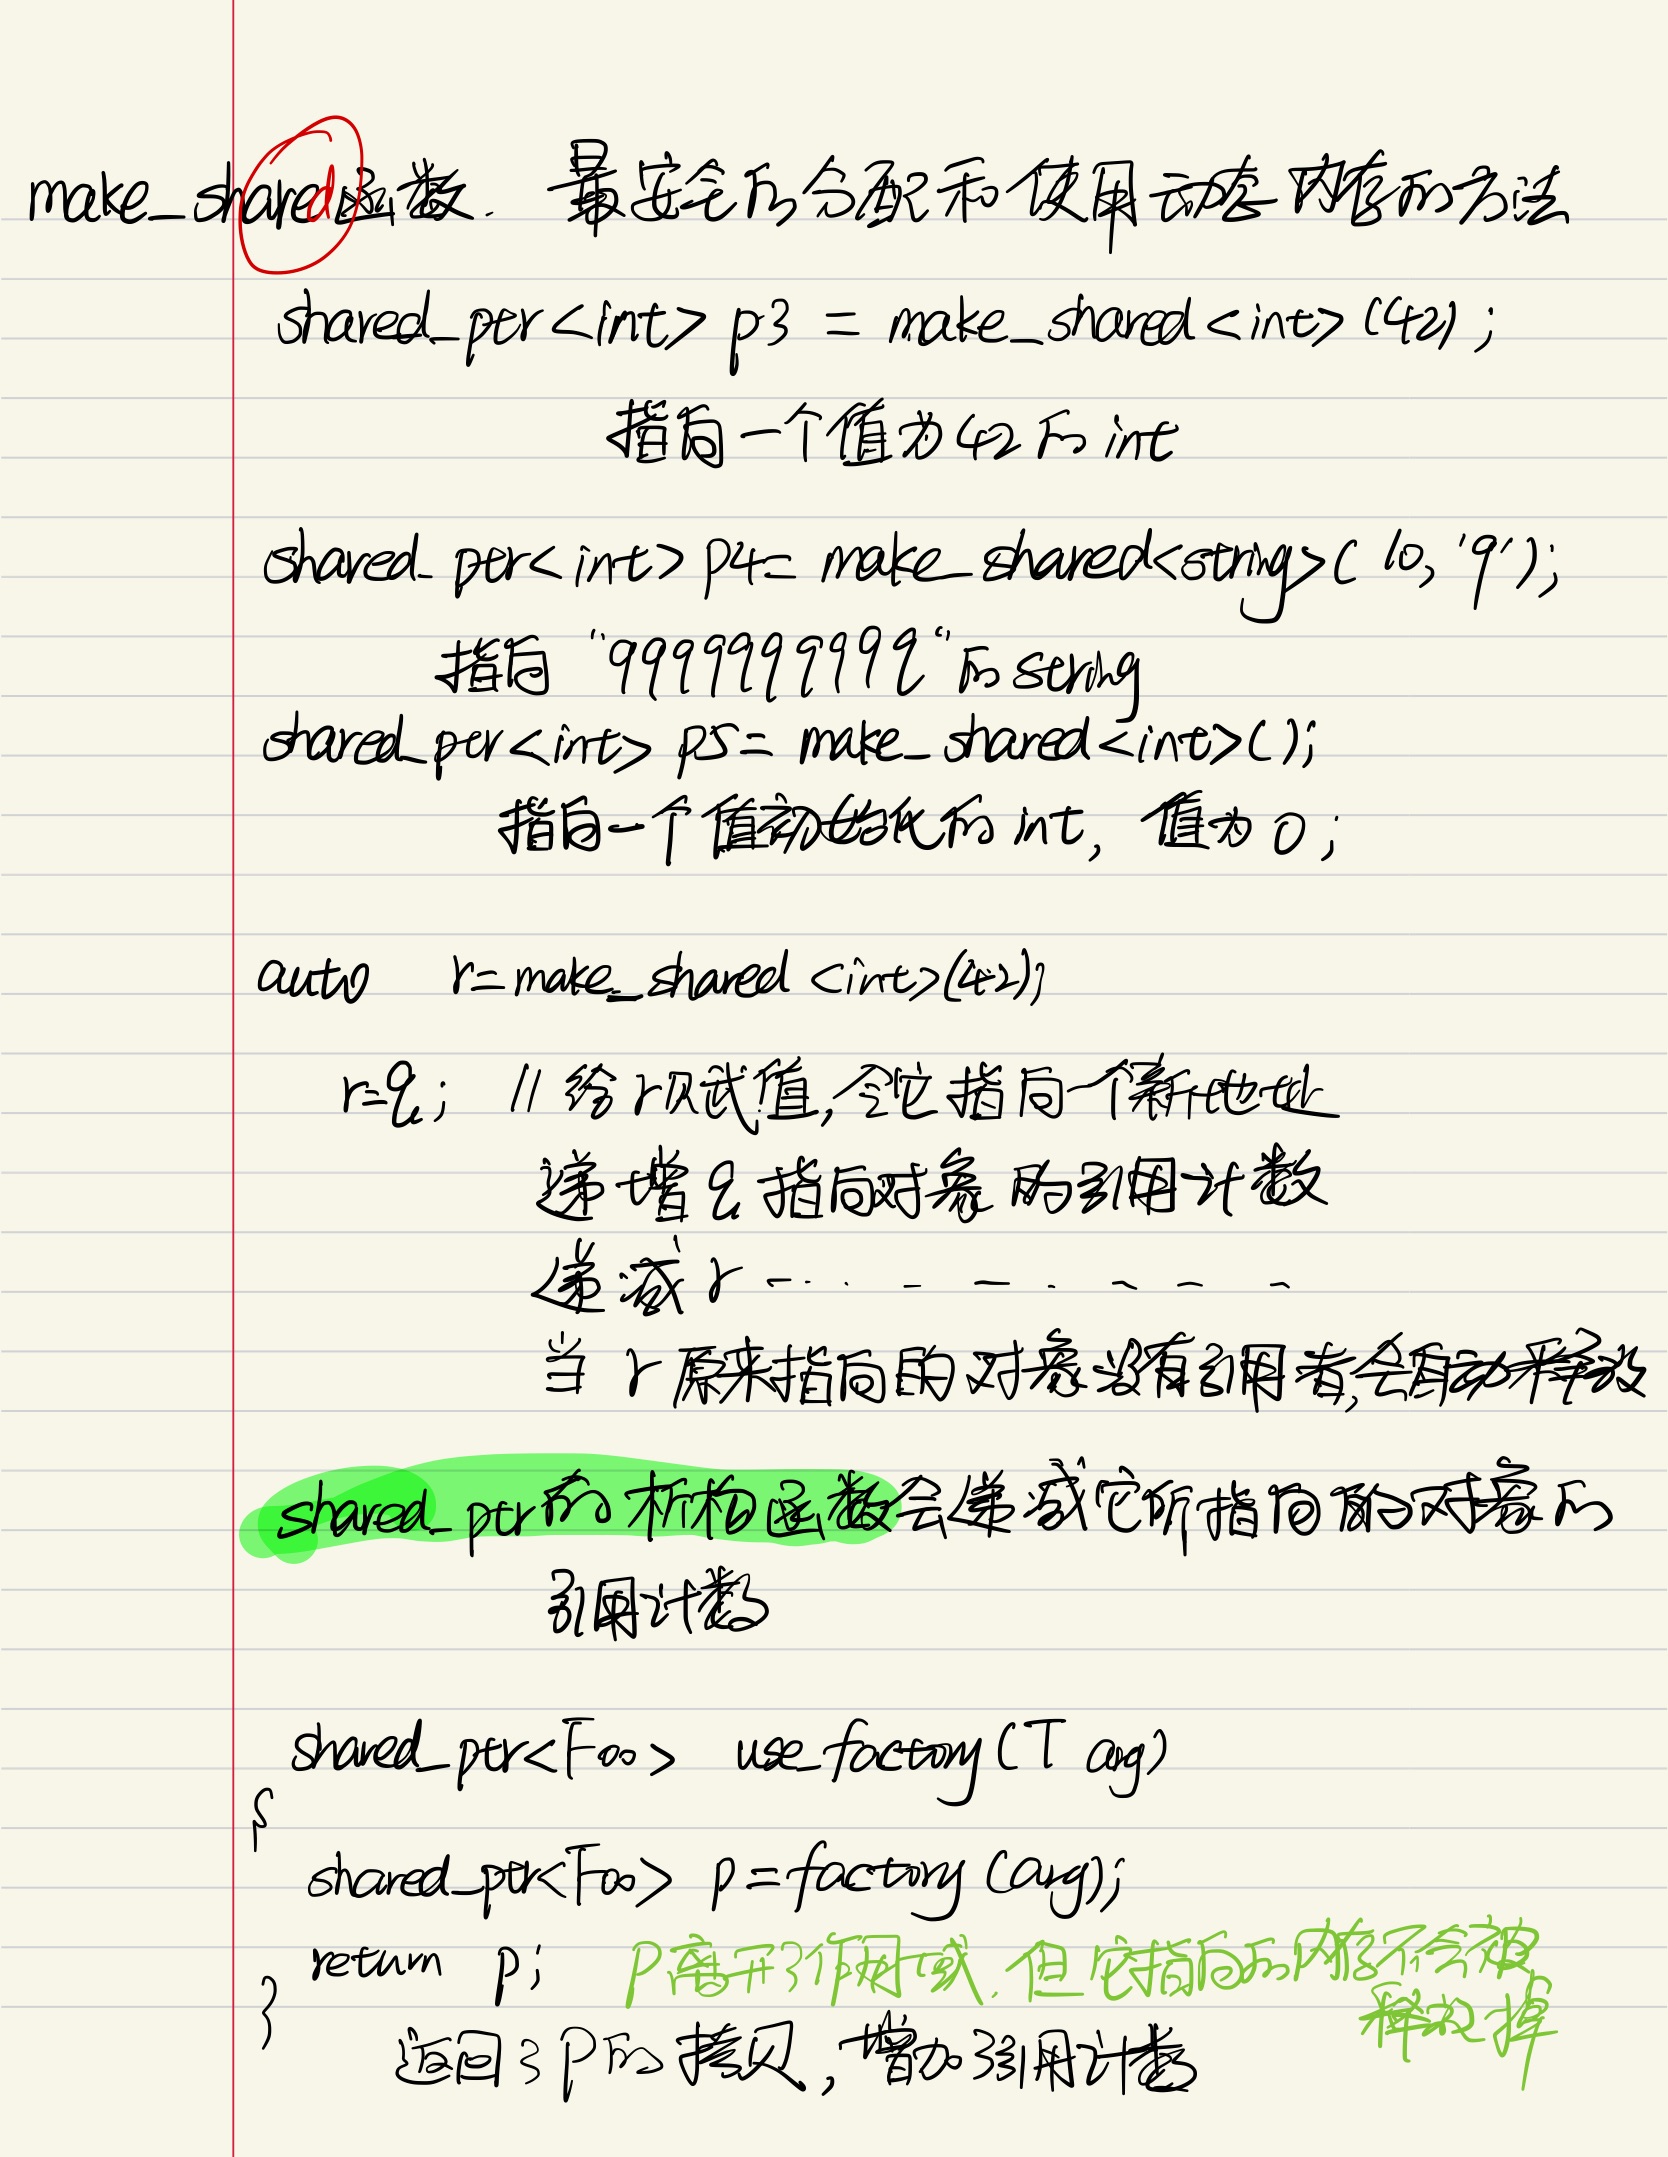 make_shared函数. 最安全的分配和使用动态内存的方法
shared_ptr<int> p3 = make_shared<int>(42);
指向一个值为42的int
shared_ptr<int> p4= make_shared<string>(10, '9');
指向 "9999999999"的string
shared_ptr<int> p5= make_shared<int>();
指向一个值初始化的int, 值为0;
auto r=make_shared<int>(42);
r=q; // 给r赋值,令它指向一个新地址
递增q指向对象的引用计数
递减r - - - - - - - - -
当r原来指向的对象没有引用者,会自动释放
shared_ptr的析构函数会递减它所指向的对象的
引用计数
shared_ptr<Foo> use_factory(T arg)
{
shared_ptr<Foo> p=factory(arg);
return p; p离开了作用域.但它指向的内存不会被
释放掉
}
返回了p的拷贝,增加了引用计数